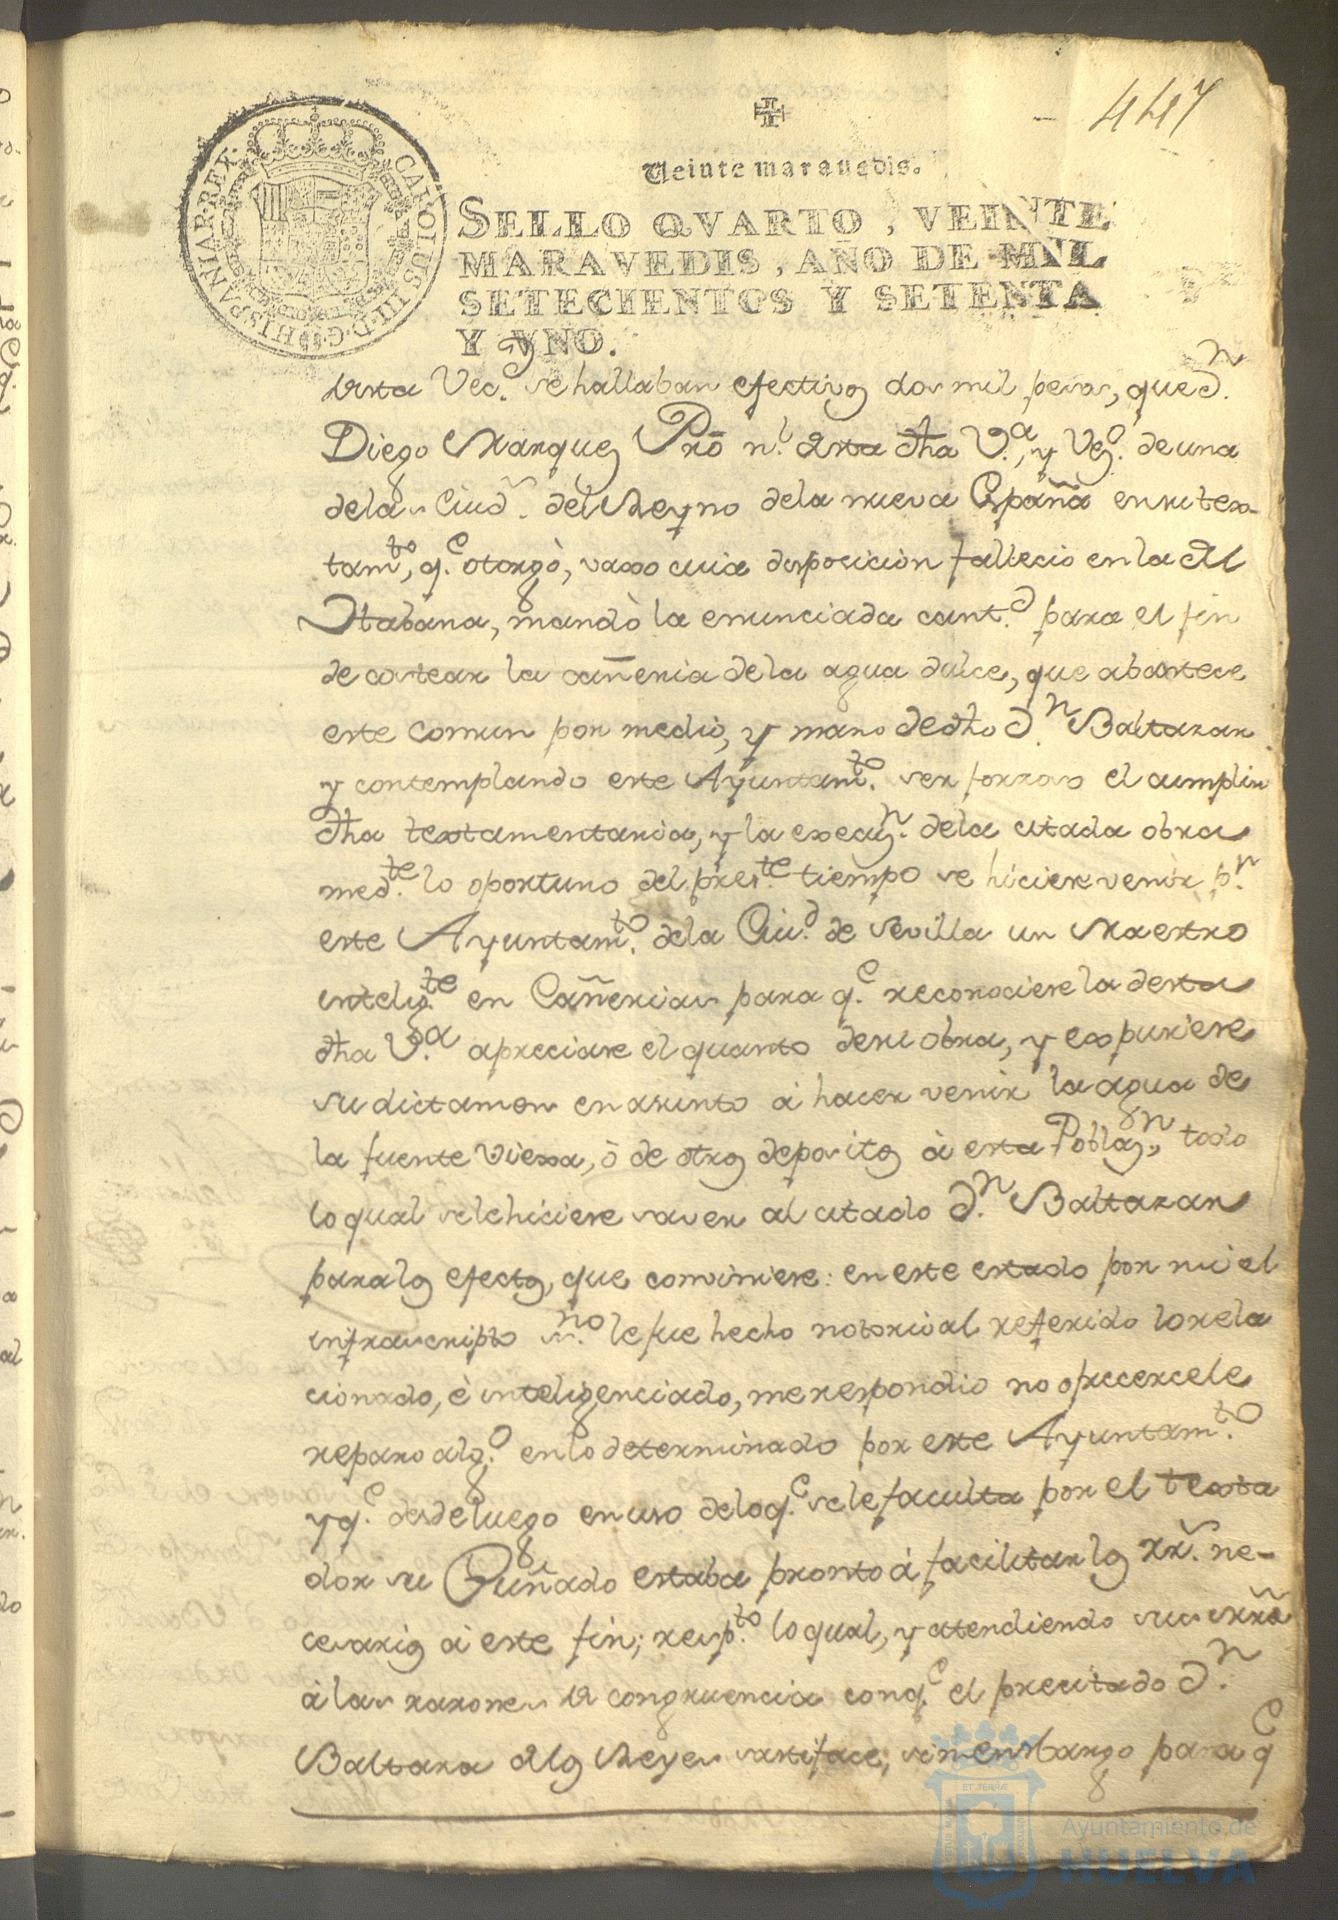 447
Veinte maravedis.
SELLO QVARTO, VEINTE
MARAVEDIS, AÑO DE MIL
SETECIENTOS Y SETENTA
Y VNO.
CAROLUS III D.G. HISPANIAR. REX.
Vec.d se hallaban efectivos dos mil pesos, que dn.
Diego Marquez Pro nl. desta dha V.a, y Vez.o de una
delas Ciud.s del Reyno dela nueva España ensu tex-
tam.to, q.e otorgò, vaxo cuia disposicion fallecio en la de la
Habana, mandò la enunciada cant.d para el fin
de costear la cañeria dela agua dulce, que abastece
este comun por medio, y mano de dho D.n Baltazar
y contemplando este Ayuntam.to ser forzoso el cumplir
dha textamentaria, y la execuz.n dela citada obra
med.te lo oportuno del pres.te tiempo se hiciere venir p.r
este Ayuntam.to dela Ciu.d de Sevilla un Maestro
intelig.te en Cañerias para q.e reconociere la desta
dha V.a apreciare el quanto desu obra, y expusiere
su dictamen en asunto à hacer venir la agua de
la fuente Viexa, ò de otros depositos à esta Poblaz.n, todo
lo qual sele hiciere saver al citado D.n Baltazar
para los efectos, que conviniere: en este estado por mi el
infraescripto ss.no le fue hecho notorio al referido lo rela
cionado, è inteligenciado, me respondio no ofrecercele
reparo alg.o en lo determinado por este Ayuntam.to
y q.e desde luego en uso delo q.e sele faculta por el texta
dor su Cuñado estaba pronto à facilitar los rr.s ne-
cesarios à este fin; resp.to lo qual, y atendiendo sus mrs
à las razones de congruencia con q.e el precitado D.n
Baltazar de los Reyes satiface, sin embargo para q.e
ET TERRÆ
Ayuntamiento de
HUELVA